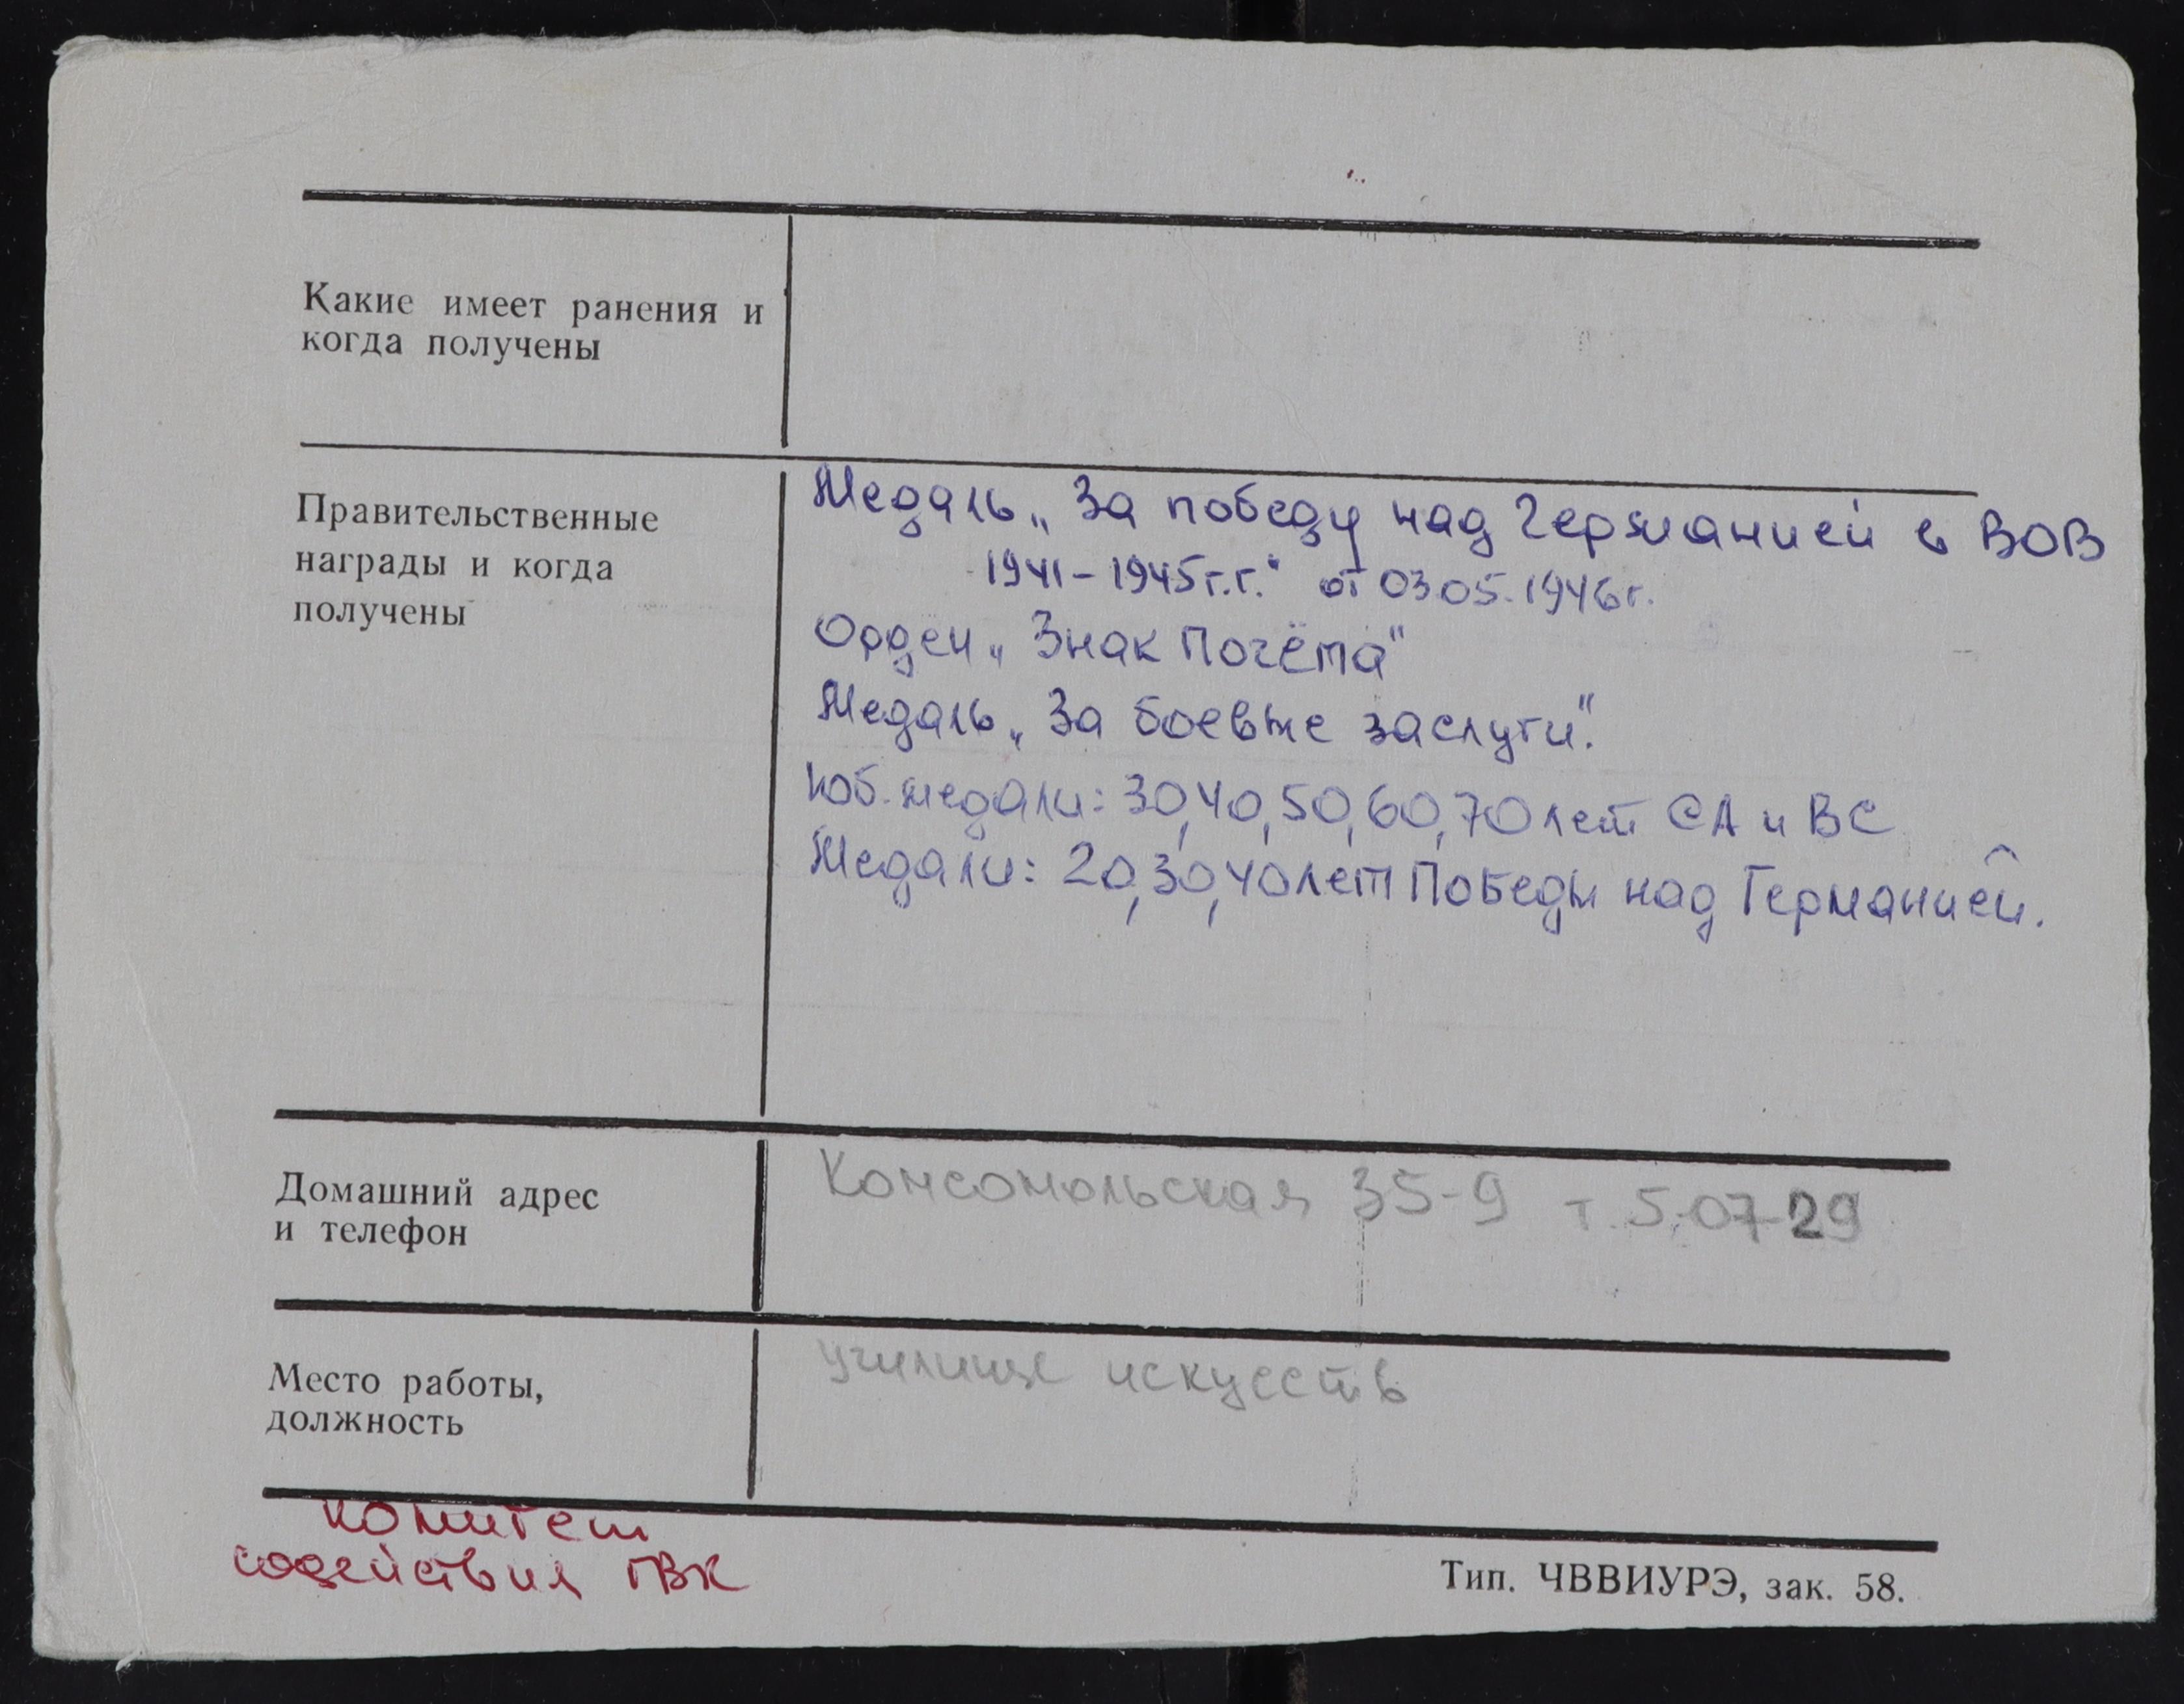 Какие имеет ранения и
когда получены
Правительственные
награды и когда
получены
Медаль „За победу над Германией в ВОВ
1941-1945г.г." от 03.05.1946г.
Орден „Знак Почёта"
Медаль „За боевые заслуги".
Юб. медали: 30, 40, 50, 60, 70 лет СА и ВС
Медали: 20, 30, 40 лет Победы над Германией.
Домашний адрес
и телефон
Комсомольская 35-9 т. 5-07-29
Место работы,
должность
училище искусств
комитет
содействия ГВК
Тип. ЧВВИУРЭ, зак. 58.